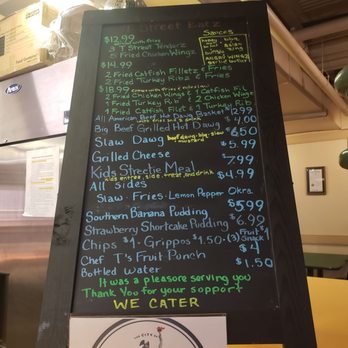 Street Eatz
$12.99
3 T Street Tenderz
5 Fried Chicken Wingz
Sauces
$14.99
2 Fried Catfish Filletz & Fries
2 Fried Turkey Ribz & Fries
$18.99
2 Fried Chicken Wingz & 1 Catfish
1 Fried Turkey Rib & 2 Chicken Wingz
1 Fried Catfish Filet & 1 Turkey Rib
All American Beef Hot Dawg Basket 12.99
Big Beef Grilled Hot Dawg $4.00
Slaw Dawg 6.50
Grilled Cheese $5.99
Kids Streetie Meal 7.99
Kids entree, side, treat and drink
All Sides $4.99
Slaw - Fries - Lemon Pepper Okra
Southern Banana Pudding $5.99
Strawberry Shortcake Pudding $6.99
Chips $1 - Grippos $1.50 - (3) Fruit Snack $1
Chef T's Fruit Punch $4
Bottled Water $1.50
It was a pleasore serving you
Thank You for your support
WE CATER